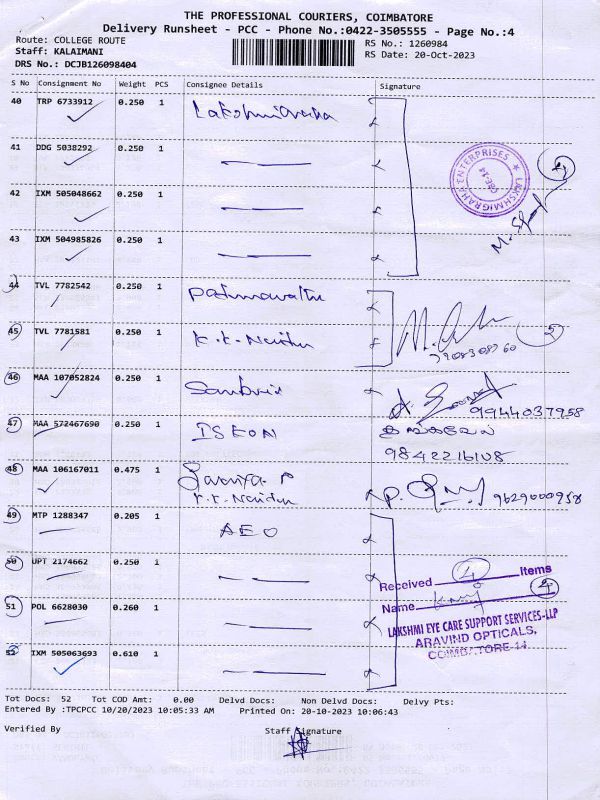 THE PROFESSIONAL COURIERS, COIMBATORE
Delivery Runsheet - PCC - Phone No.:0422-3505555 - Page No.:4
Route: COLLEGE ROUTE
RS No.: 1260984
Staff: KALAIMANI
RS Date: 20-Oct-2023
DRS No.: DCJB126098404
S No Consignment No Weight PCS Consignee Details Signature
40 TRP 6733912 0.250 1
41 DDG 5038292 0.250 1
LAKSHMIGRAHA ENTERPRISES
CBE-14
42 IXM 505048662 0.250 1
43 IXM 504985826 0.250 1
44 TVL 7782542 0.250 1 Padmavathi
45 TVL 7781581 0.250 1 K.K. Naidu
46 MAA 107052824 0.250 1
9944037958
47 MAA 572467690 0.250 1
9842216108
48 MAA 106167011 0.475 1
9629000958
49 MTP 1288347 0.205 1 AEO
50 UPT 2174662 0.250 1
Received 4 Items
51 POL 6628030 0.260 1
Name
LAKSHMI EYE CARE SUPPORT SERVICES-LLP
ARAVIND OPTICALS,
COIMBATORE-14
52 IXM 505063693 0.610 1
Tot Docs: 52 Tot COD Amt: 0.00 Delvd Docs: Non Delvd Docs: Delvy Pts:
Entered By :TPCPCC 10/20/2023 10:05:33 AM Printed On: 20-10-2023 10:06:43
Verified By Staff Signature